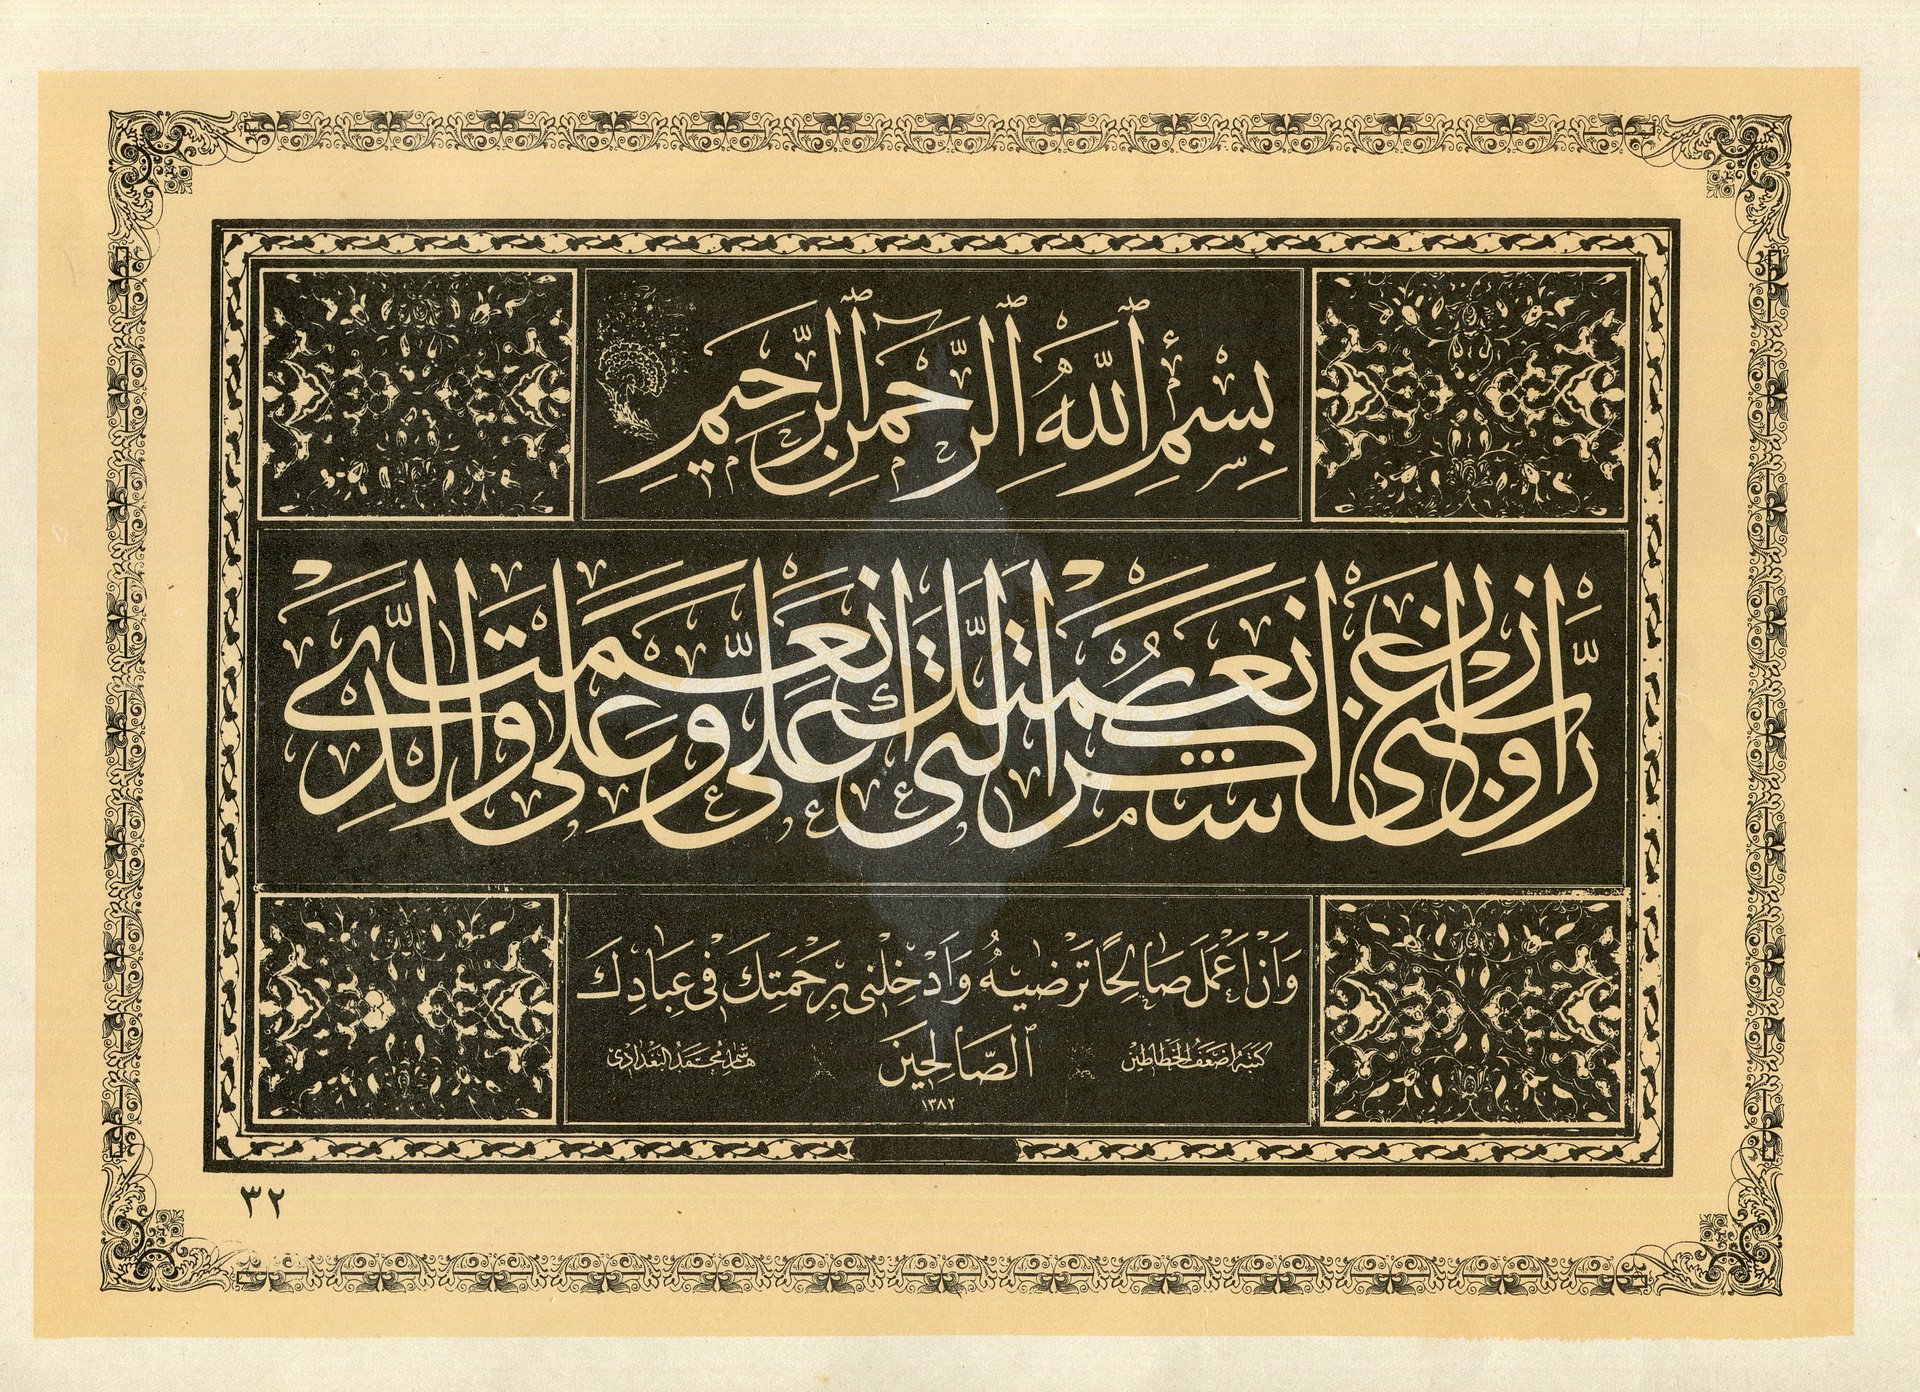 بِسْمِ ٱللَّهِ ٱلرَّحْمَنِ ٱلرَّحِيمِ
رَبِّ أَوْزِعْنِي أَنْ أَشْكُرَ نِعْمَتَكَ الَّتِي أَنْعَمْتَ عَلَيَّ وَعَلَى وَالِدَيَّ
وَأَنْ أَعْمَلَ صَالِحًا تَرْضَيهُ وَأَدْخِلْنِي بِرَحْمَتِكَ فِي عِبَادِكَ
ٱلصَّالِحِينَ
كتبه اضعف الخطاطين
هاشم محمد البغدادي
١٣٨٢
٣٢